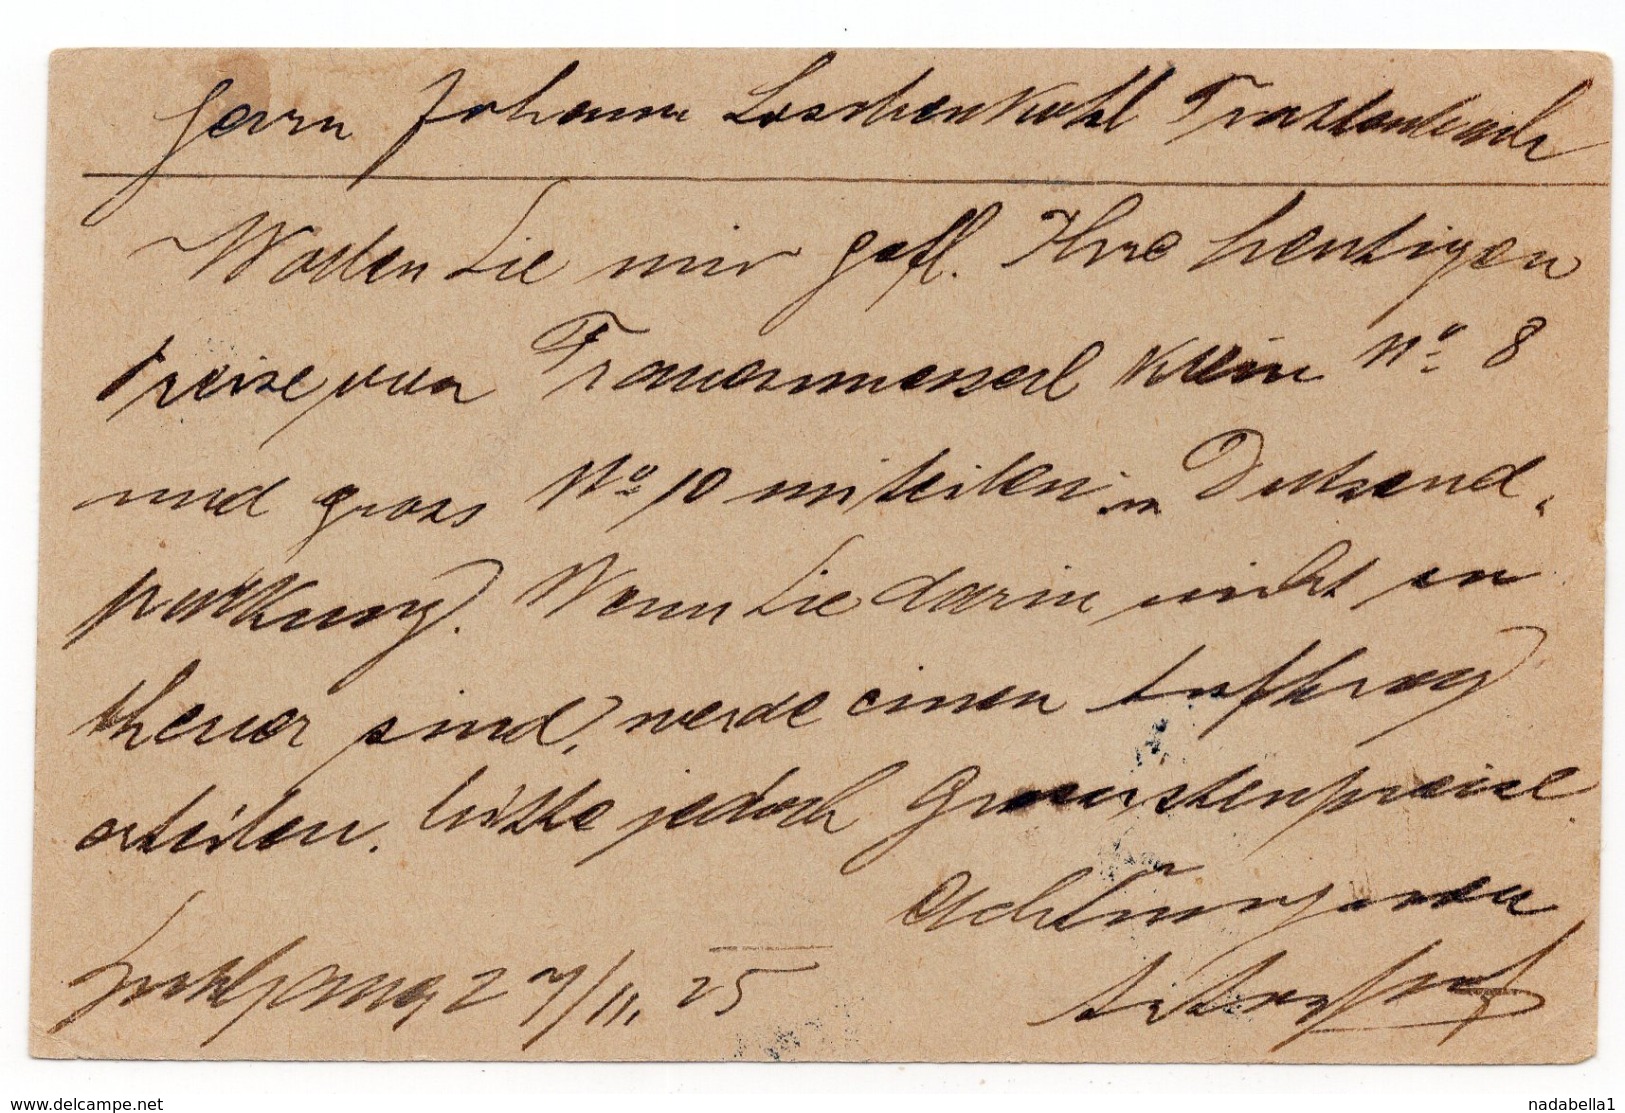 Herrn Johann Löschenkohl Trattenbach
Wollen Sie mir gefl. Ihre heutigen
Preise von Trauenmesserl klein No 8
und gross No 10 mitteilen in Dutzend-
packung. Wenn Sie darin nicht zu
theuer sind, werde einen Auftrag
erteilen. bitte jedoch Grossistenpreise.
Achtungsvoll
27/II. 25
www.delcampe.net
nadabella1